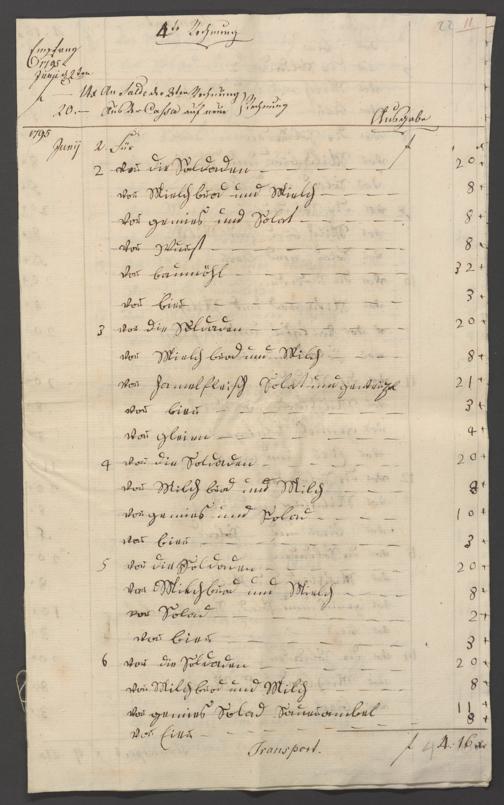 4te Rechnung
22 11
Empfang
1795
Junij d 2ten
An Saldo der 3ten Rechnung
20.— Aus der Cassa auf neue Rechnung
Ausgabe
1795
Junij 2 Für
2 vor die Soldaden 20
vor Mielchbrod und Mielch 8
vor gemies und Solat 8
vor Wurst 8
vor baumöhl 32
vor bier 3
3 vor die Soldaden 20
vor Mielch brod und Milch 8
vor Hamelfleisch Solat und gewürtz 21
vor bier 3
vor gleien 4
4 vor die Soldaden 20
vor Milch brod und Milch 8
vor gemies und Solad 10
vor bier 3
5 vor die Soldaden 20
vor Mielchbrod und Mielch 8
vor Solad 2
vor bier 3
6 vor die Soldaden 20
vor Milch brod und Milch 8
vor gemies Solad Sauerambel 11
vor bier 8
Transport. f 4.16